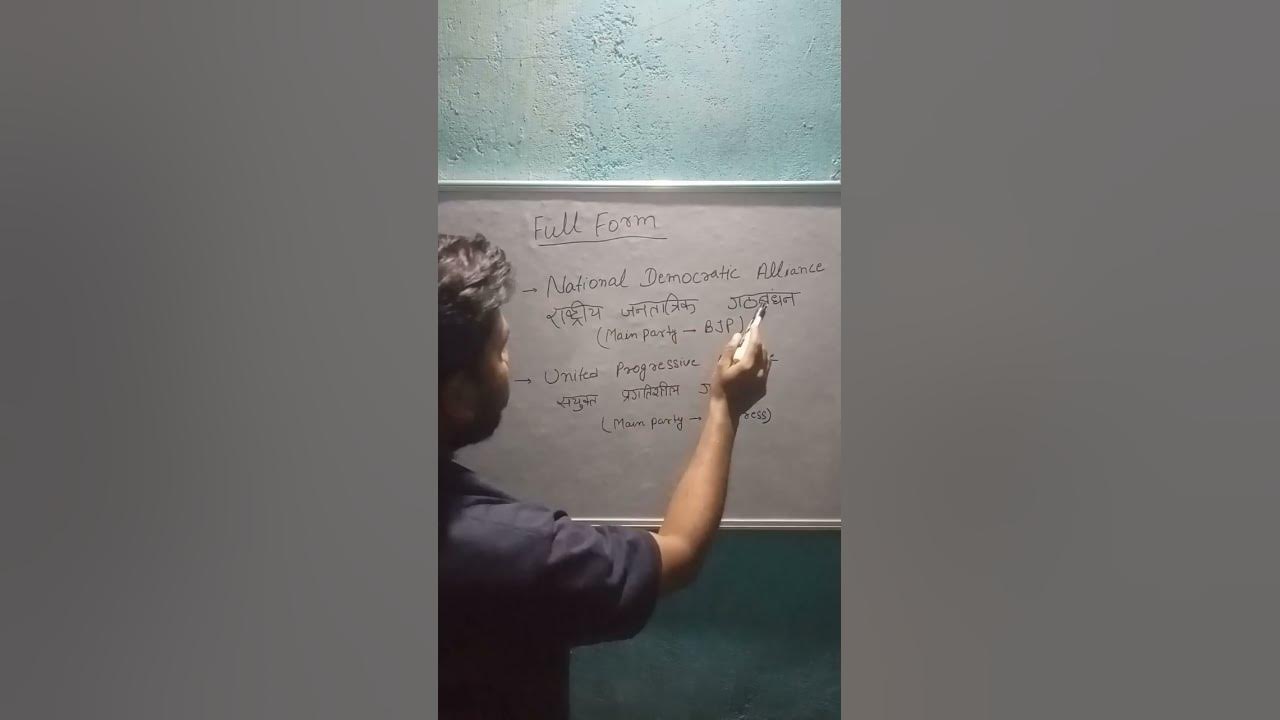 Full Form
→ National Democratic Alliance
राष्ट्रीय जनतात्रिक गठबंधन
(Main party → BJP)
→ United Progressive
सयुक्त प्रगतिशील
(Main party →